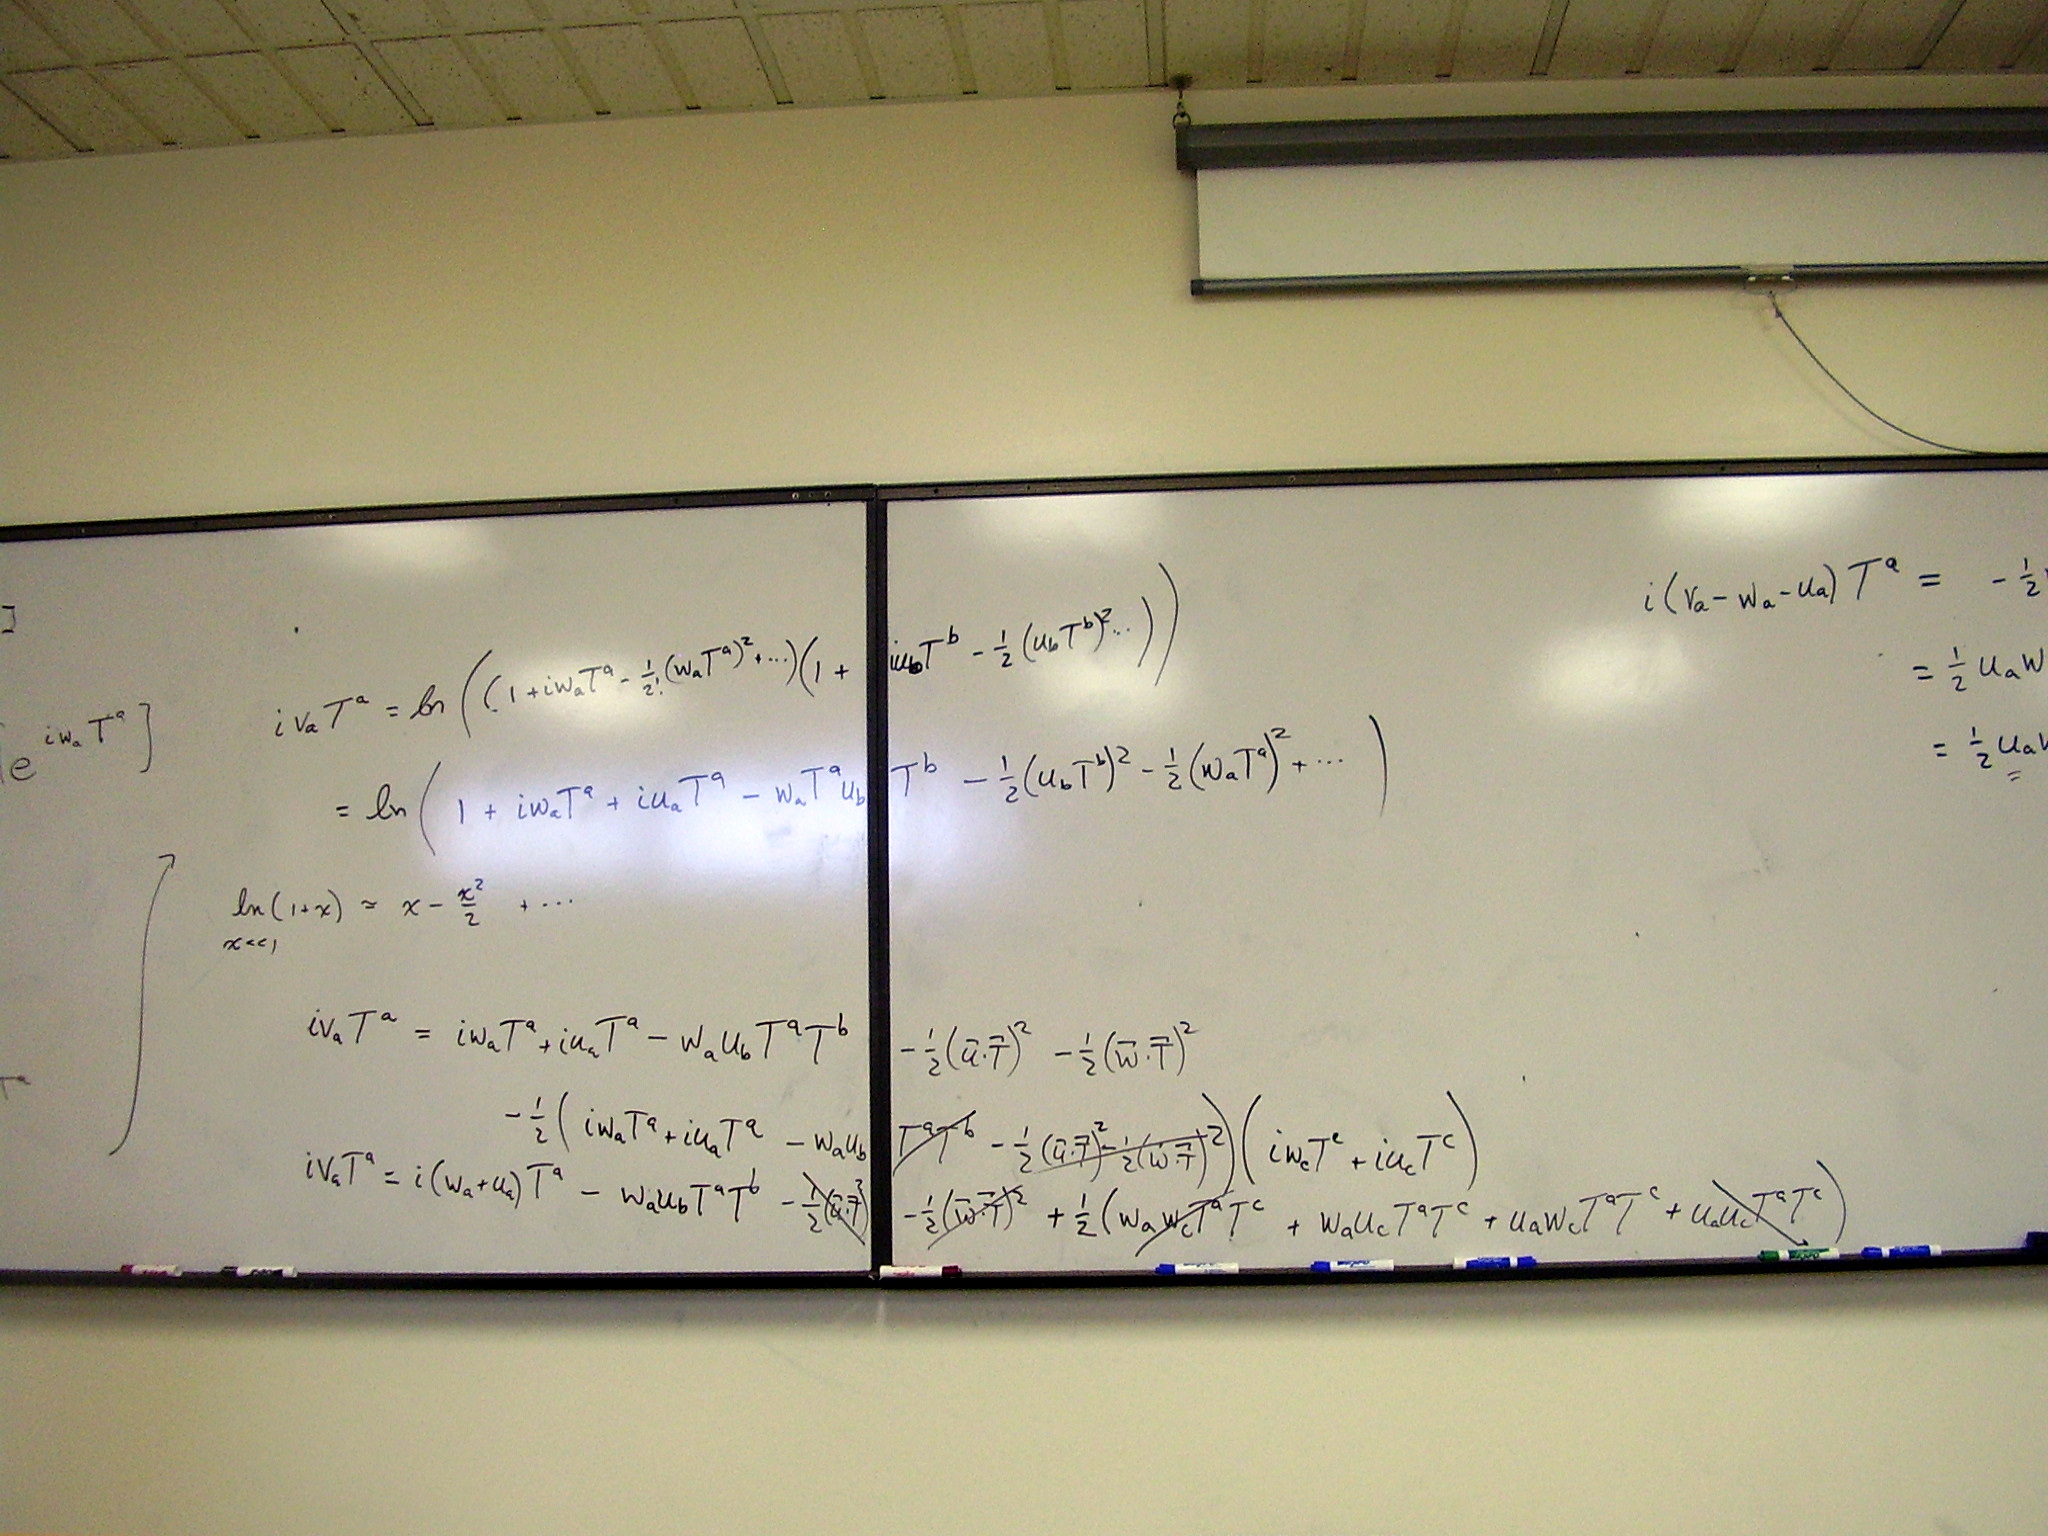 ]
e^{i w_a T^a} ]
T^a
i v_a T^a = ln ( (1 + i w_a T^a - 1/2! (w_a T^a)^2 + ...)(1 + i u_b T^b - 1/2 (u_b T^b)^2 ...) )
= ln ( 1 + i w_a T^a + i u_a T^a - w_a T^a u_b T^b - 1/2 (u_b T^b)^2 - 1/2 (w_a T^a)^2 + ... )
ln(1+x) ≃ x - x^2/2 + ...
x<<1
i v_a T^a = i w_a T^a + i u_a T^a - w_a u_b T^a T^b - 1/2 (u⃗·T⃗)^2 - 1/2 (w⃗·T⃗)^2
- 1/2 ( i w_a T^a + i u_a T^a - w_a u_b T^a T^b - 1/2 (u⃗·T⃗)^2 - 1/2 (w⃗·T⃗)^2 ) ( i w_c T^c + i u_c T^c )
i v_a T^a = i (w_a + u_a) T^a - w_a u_b T^a T^b - 1/2 (u⃗·T⃗)^2 - 1/2 (w⃗·T⃗)^2 + 1/2 ( w_a w_c T^a T^c + w_a u_c T^a T^c + u_a w_c T^a T^c + u_a u_c T^a T^c )
i (v_a - w_a - u_a) T^a = - 1/2
= 1/2 u_a w
= 1/2 u_a